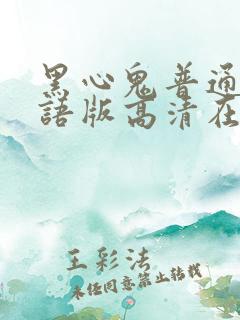 黑心鬼普通
語版高清在
王彩法
未经同意禁止转载